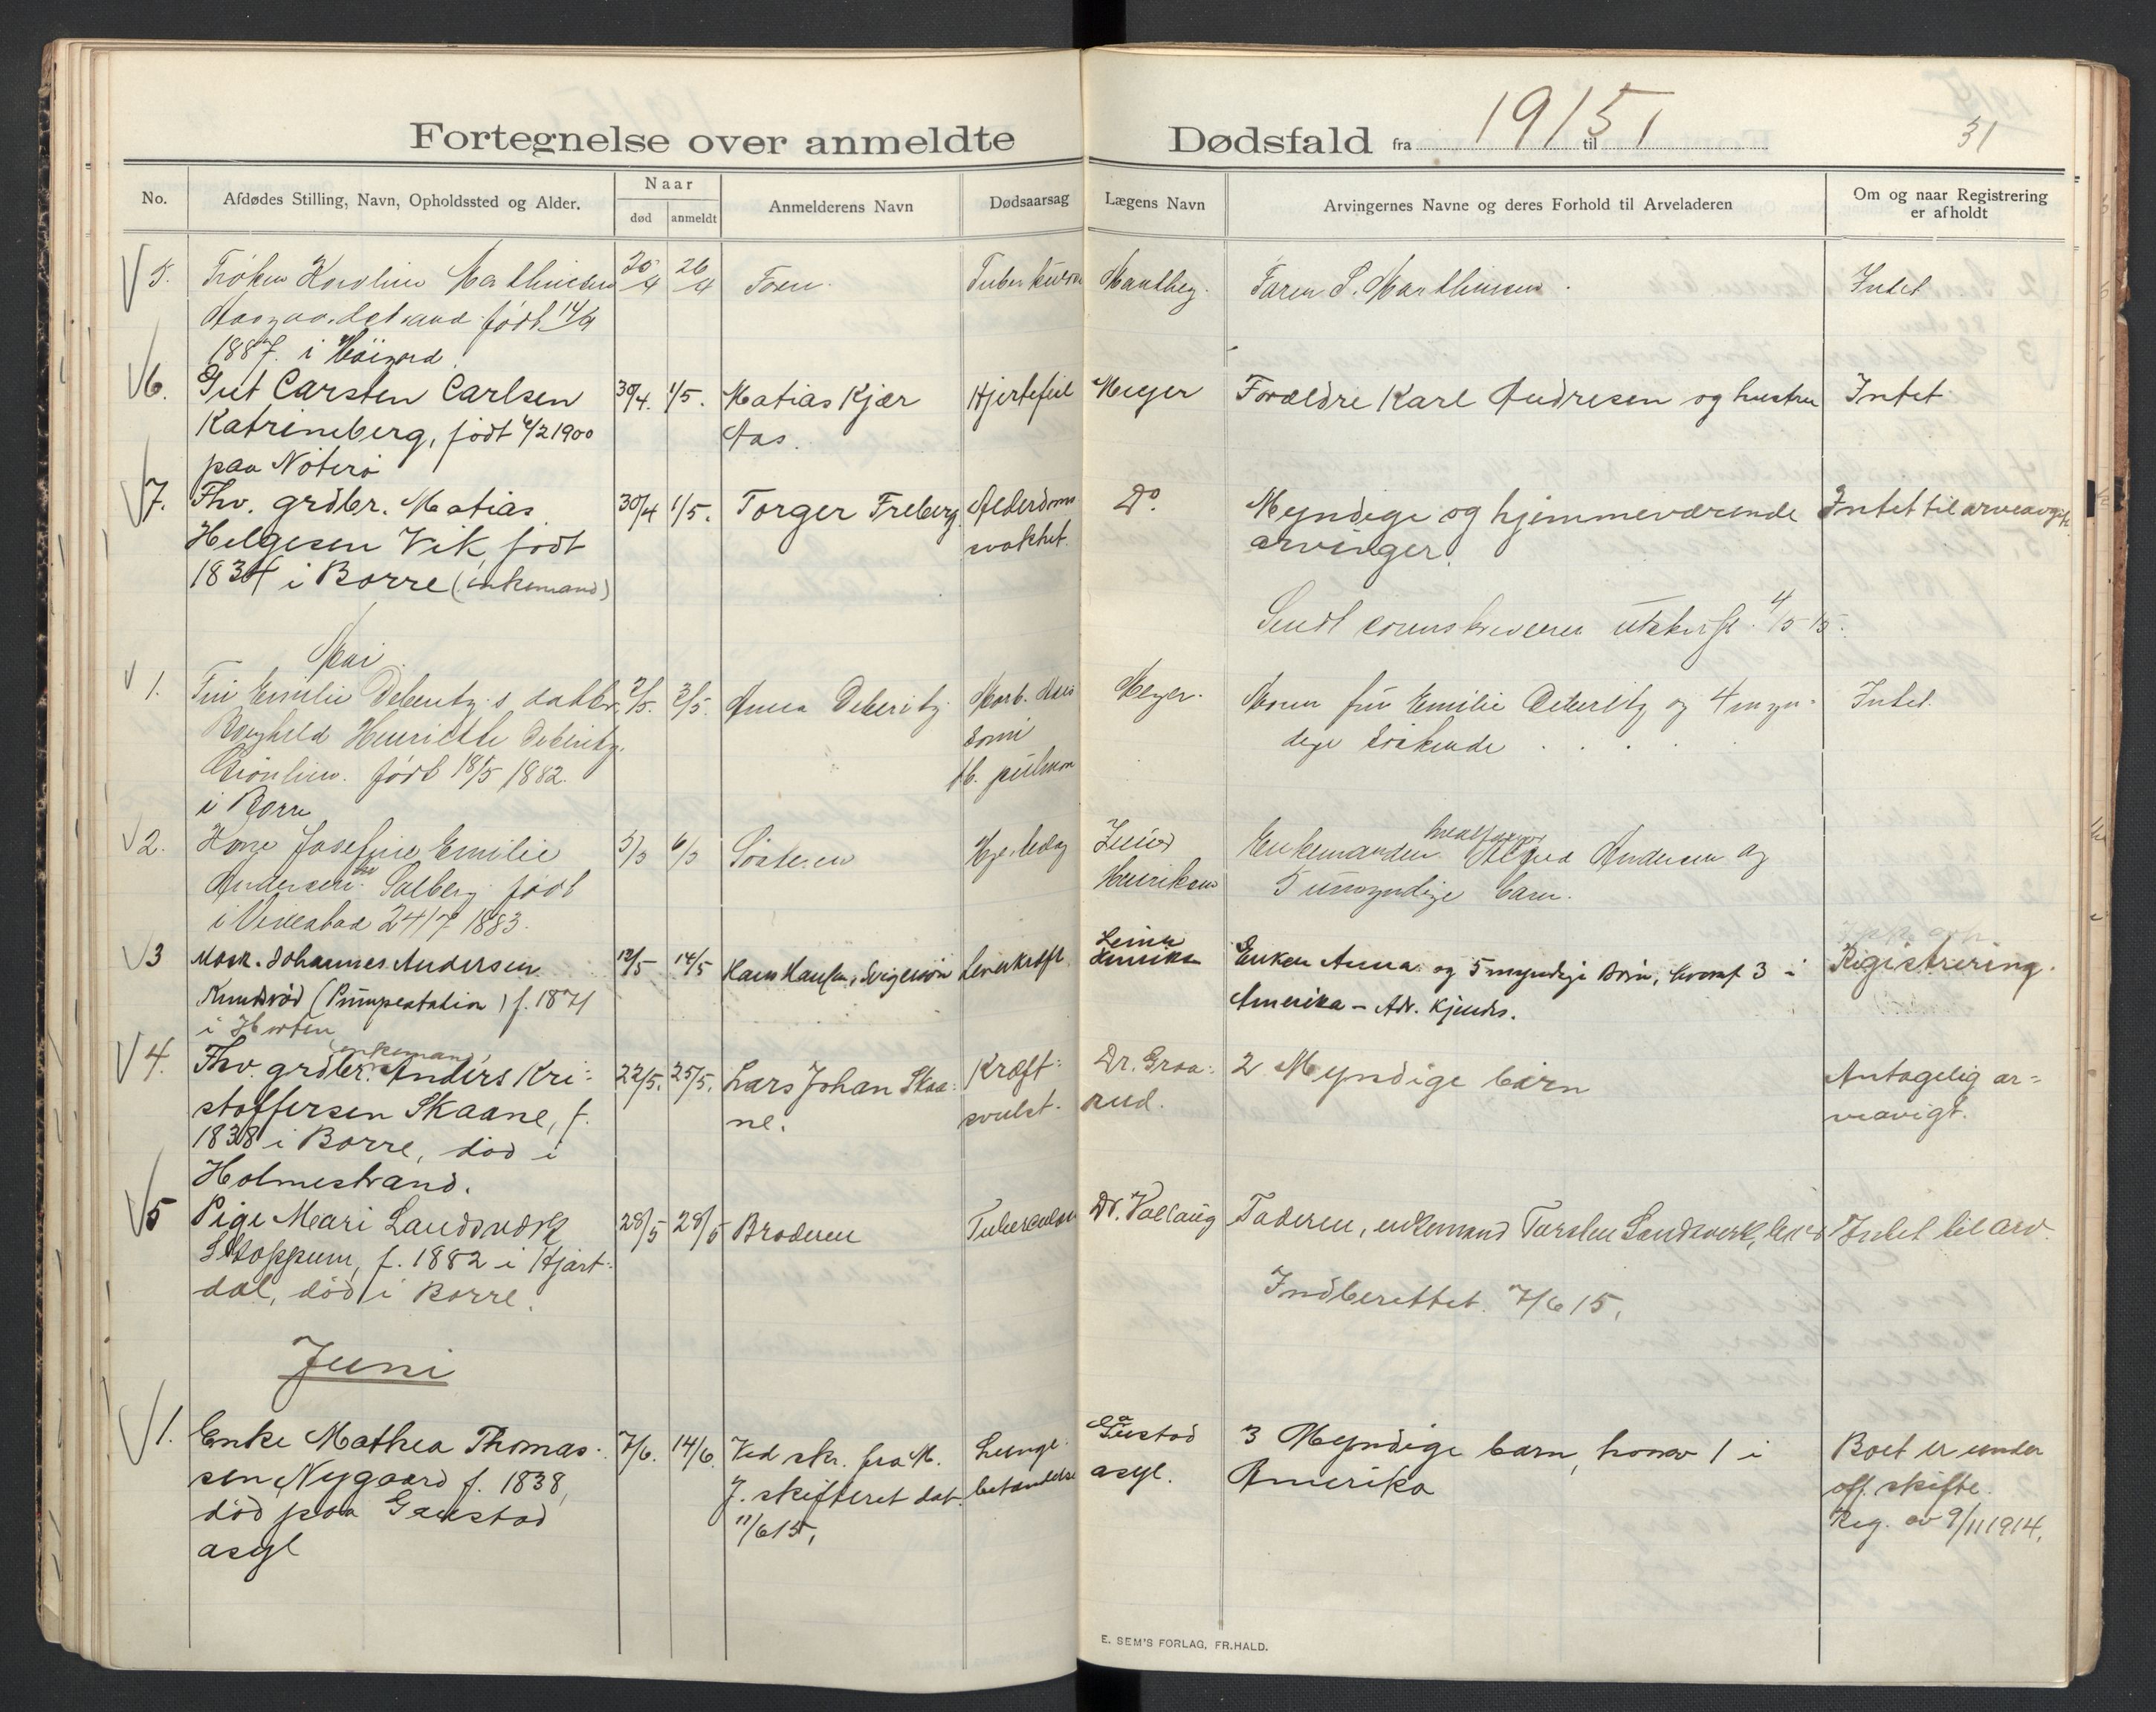 Fortegnelse over anmeldte Dødsfald fra 1915 til
31
No.
Afdødes Stilling, Navn, Opholdssted og Alder.
Naar
død
anmeldt
Anmelderens Navn
Dødsaarsag
Lægens Navn
Arvingernes Navne og deres Forhold til Arveladeren
Om og naar Registrering
er afholdt
5. Frøken Karoline Mathiesen 25/4 26/4 Faren Tuberkulose Manthey. Faren S. Marthinsen. Intet
født 14/9
1887. i
6. Gut Carsten Carlsen 30/4. 1/5. Matias Kjær Hjertefeil Meyer Forældre Karl Andresen og hustru Intet
Katrineberg, født 4/2 1900 Aas.
paa Nøterø
7. Fhv. grdbr. Matias 30/4 1/5. Torger Freberg Alderdoms Do. Myndige og hjemmeværende Intet til arveavgift
Helgesen Vik, født svakhet. arvinger.
1834 i Borre (enkemand)
Sendt utskrift 4/5 15.
Mai
1. Fru Emilie Deberitz's datter 2/5. 3/5. Anna Deberitz Morb. Meyer. Moren fru Emilie Deberitz og 4 myn- Intet.
Borghild Henriette Deberitz. dige søskende
født 18/5 1882. tb. pulmon
i Borre
2. Kone Josefine Emilie 5/5 6/5 Søsteren Hjerteslag Enkemanden Alfred Andersen og
Andersen Solberg født Henriksen 5 umyndige barn.
i Vivestad 24/7 1883.
3 Mask. Johannes Andersen 12/5 14/5 Hans Hansen, Svigersøn Leverkræft Enken Anna og 5 myndige Børn, hvoraf 3 i Registrering.
Knudsrød (Pumpestation) f. 1871 Amerika – Adv. Kjendes.
i Horten
enkemand,
4. Fhv. grdbr. Anders Kri- 22/5. 25/5. Lars Johan Skaa- Kræft- Dr. Graa- 2 Myndige børn Antagelig ar-
stoffersen Skaane, f. ne. svulst. rud. veavigt.
1838 i Borre, død i
Holmestrand.
5 Pige Mari Landsverk 28/5 28/5 Broderen Tuberculose Dr. Faderen, enkemand Torsten Landsverk, Intet til arv.
Stoppum, f. 1882 i Hjart-
dal, død i Borre. Indberettet 7/6 15.
Juni
1. Enke Mathea Thomas- 7/6. 14/6. Ved skr. fra M. Lunge- Gaustad 3 Myndige barn, hvorav 1 i Boet er under
sen, Nygaard f. 1838, J. skifteret dat. betændelse asyl. Amerika off. skifte.
død paa Gaustad 11/6 15. Reg. av 9/11 1914.
asyl
E. SEM'S FORLAG, FR.HALD.